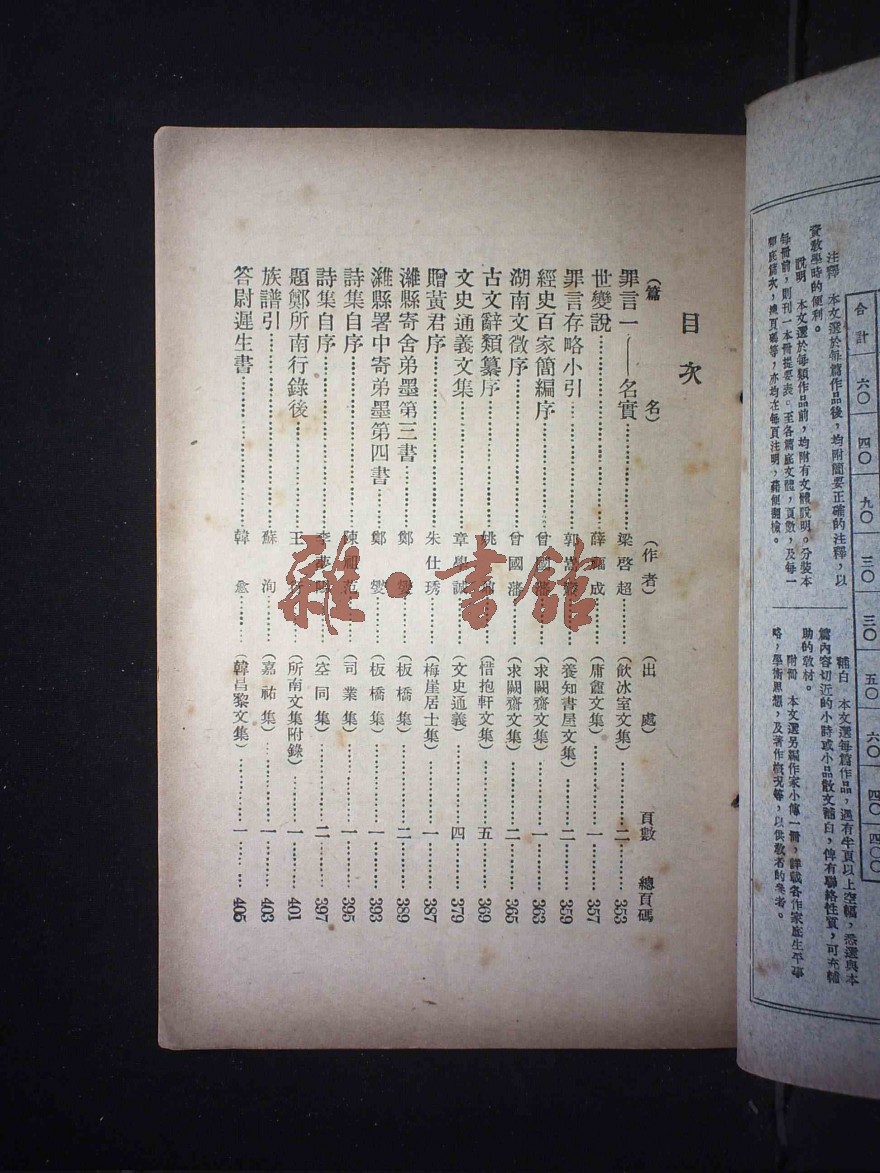 合計 六〇 四〇 九〇 三〇 三〇 五〇 六〇 四〇 四〇〇
注釋 本文選於每篇作品後，均附簡要正確的注釋，以
資教學時的便利。
說明 本文選於每類作品前，均附有文體說明。分裝本
每冊前，則刊一本冊提要表。至各篇底文體，頁數，及每一
補白 本文選每篇作品，遇有半頁以上空幅，悉選與本
篇內容切近的小詩或小品散文補白，俾有聯絡性質，可充輔
助的教材。
附冊 本文選另編作家小傳一冊，詳載各作家底生平事
略，學術思想，及著作概況等，以供教者的參考。
目次
（篇 名） （作者） （出 處） 頁數 總頁碼
罪言一——名實 梁啓超 （飲冰室文集） 二 353
世變說 薛成 （庸盦文集） 一 357
罪言存略小引 郭嵩 （養知書屋文集） 二 359
經史百家簡編序 曾國藩 （求闕齋文集） 一 363
湖南文徵序 曾國藩 （求闕齋文集） 二 365
古文辭類纂序 姚 （惜抱軒文集） 五 369
文史通義文集 章學誠 （文史通義） 四 379
贈黃君序 朱仕琇 （梅崖居士集） 一 387
濰縣寄舍弟墨第三書 鄭燮 （板橋集） 二 389
濰縣署中寄弟墨第四書 鄭燮 （板橋集） 一 393
詩集自序 陳祖范 （司業集） 一 395
詩集自序 李夢陽 （空同集） 二 397
題鄭所南行錄後 王 （所南文集附錄） 一 401
族譜引 蘇洵 （嘉祐集） 一 403
答尉遲生書 韓愈 （韓昌黎文集） 一 405
雜·書館